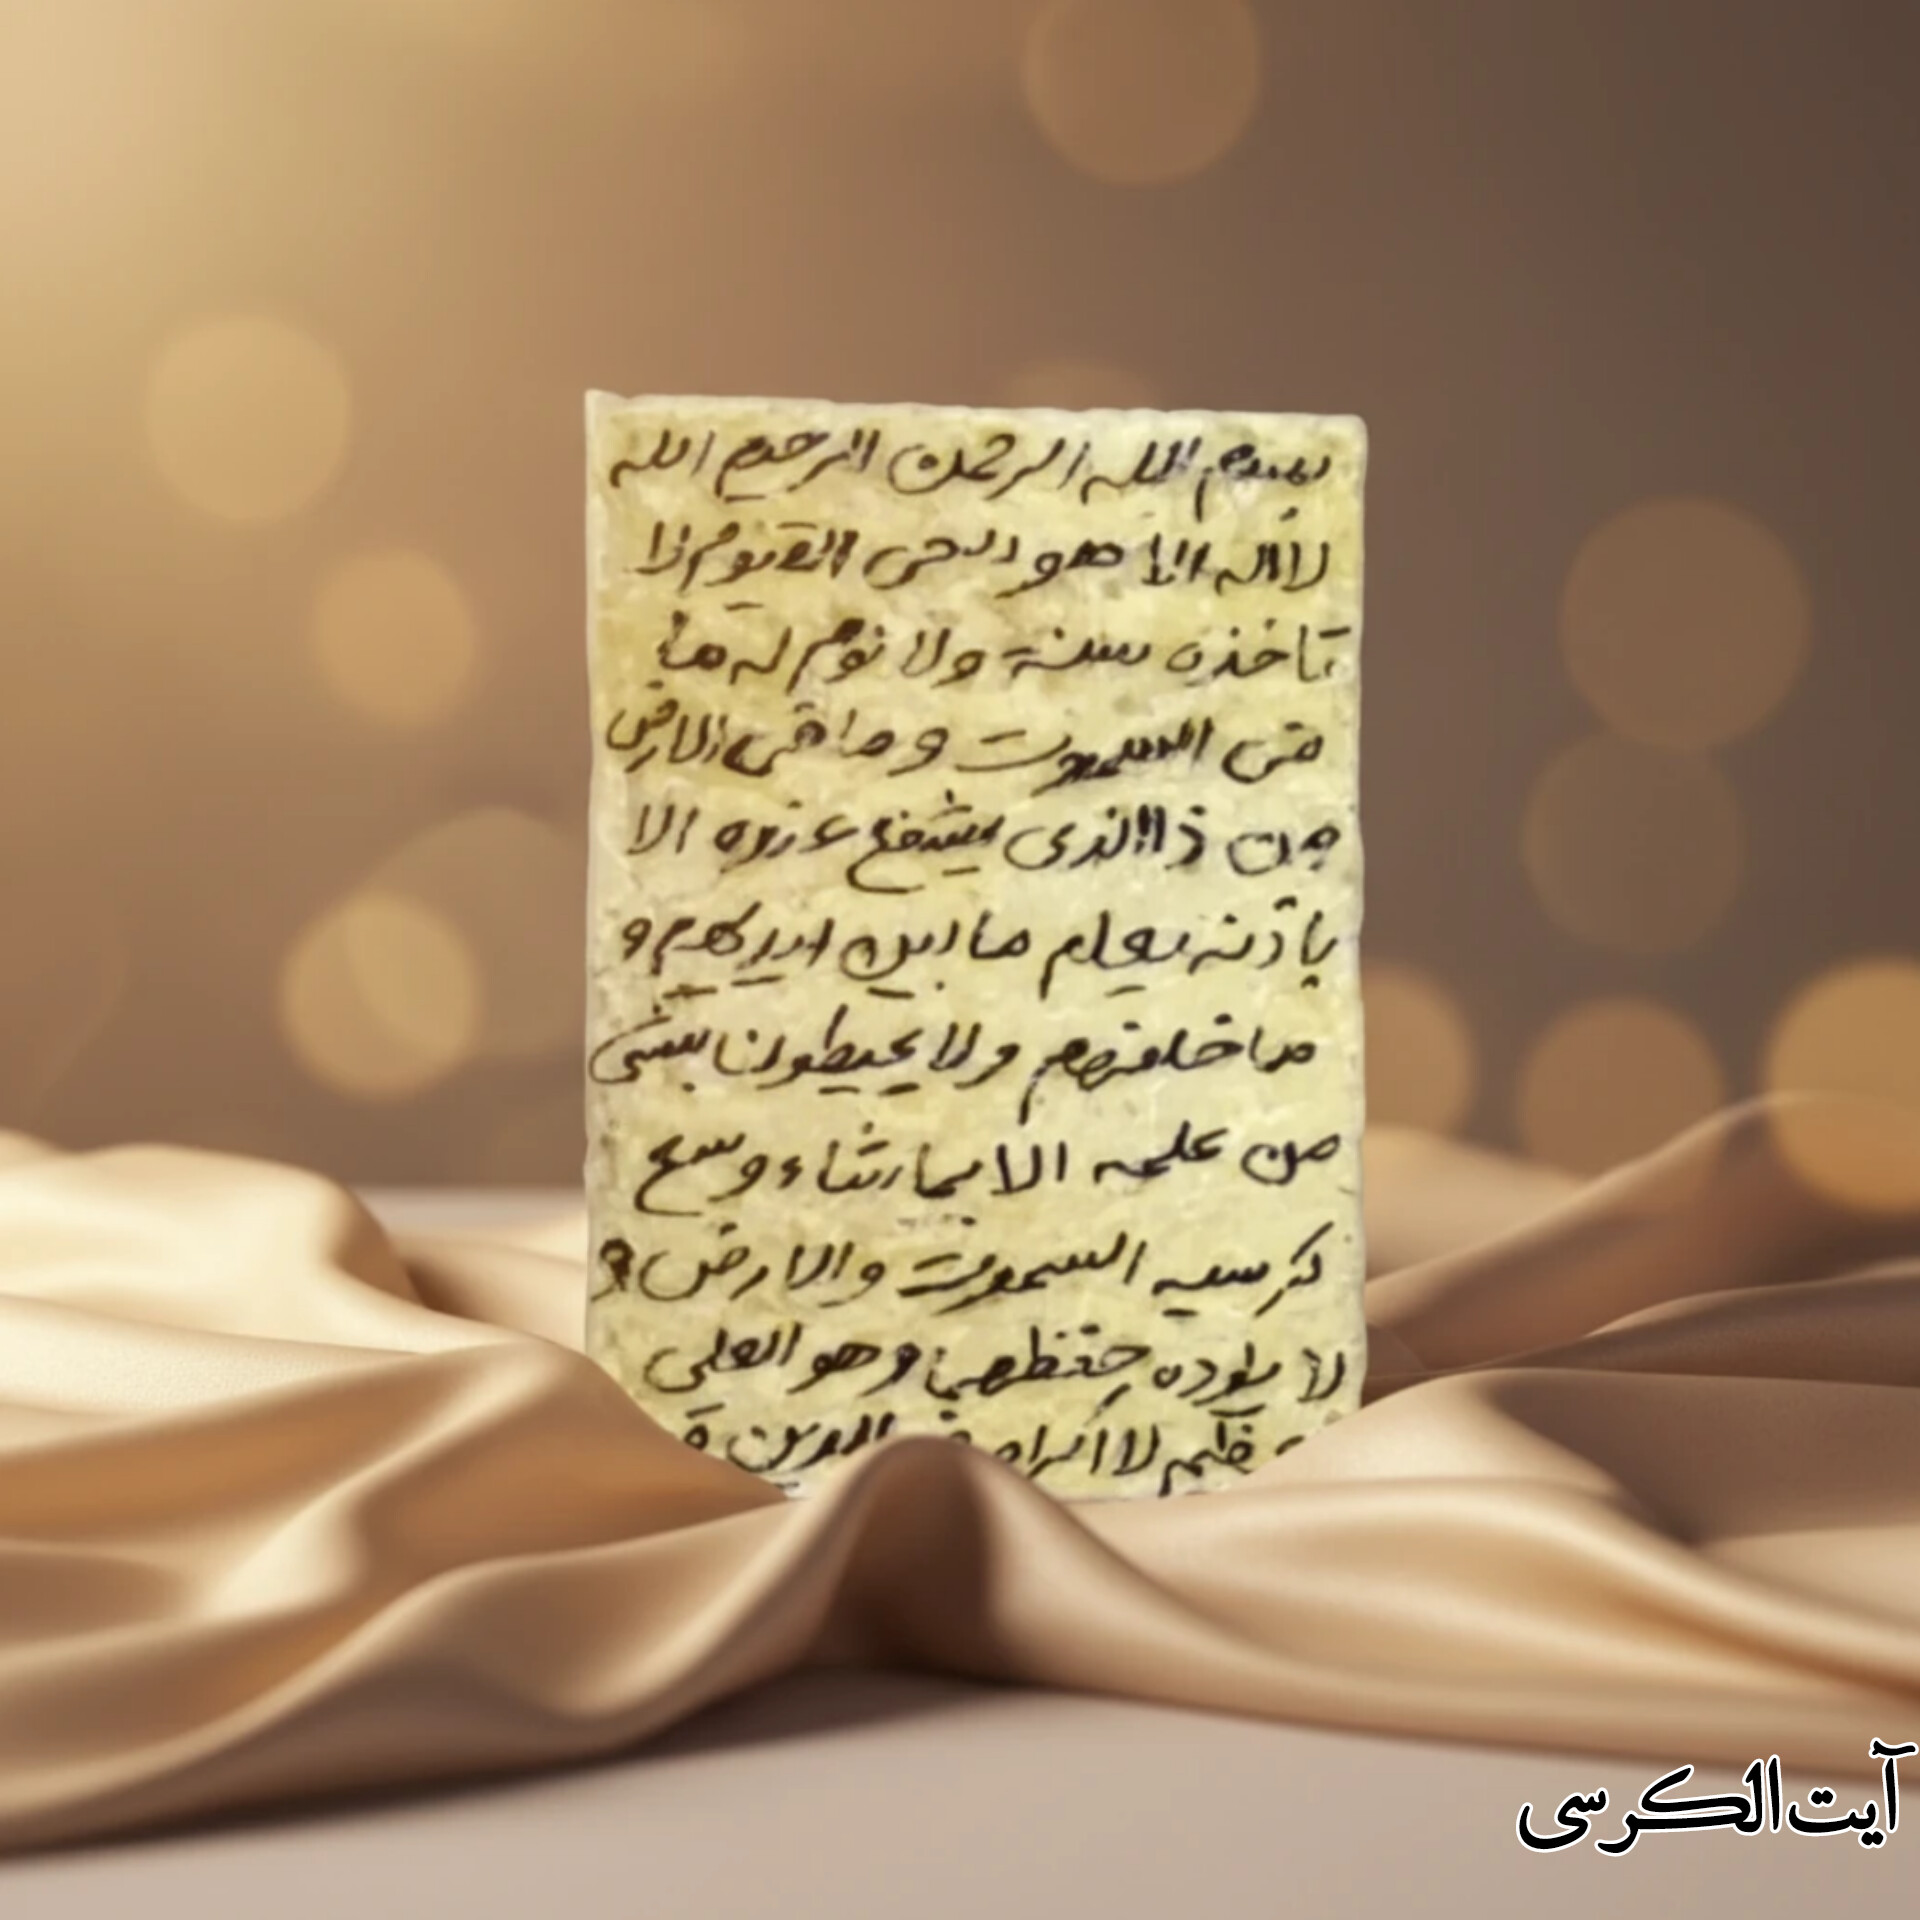 بسم الله الرحمن الرحيم الله
لا اله الا هو الحى القيوم لا
تاخذه سنة ولا نوم له ما
فى السموت وما فى الارض
من ذا الذى يشفع عنده الا
باذنه يعلم ما بين ايديهم و
ما خلفهم ولا يحيطون بشى
من علمه الا بما شاء وسع
كرسيه السموت والارض و
لا يؤده حفظهما وهو العلي
لا اكراه الدين
آیت الکرسی